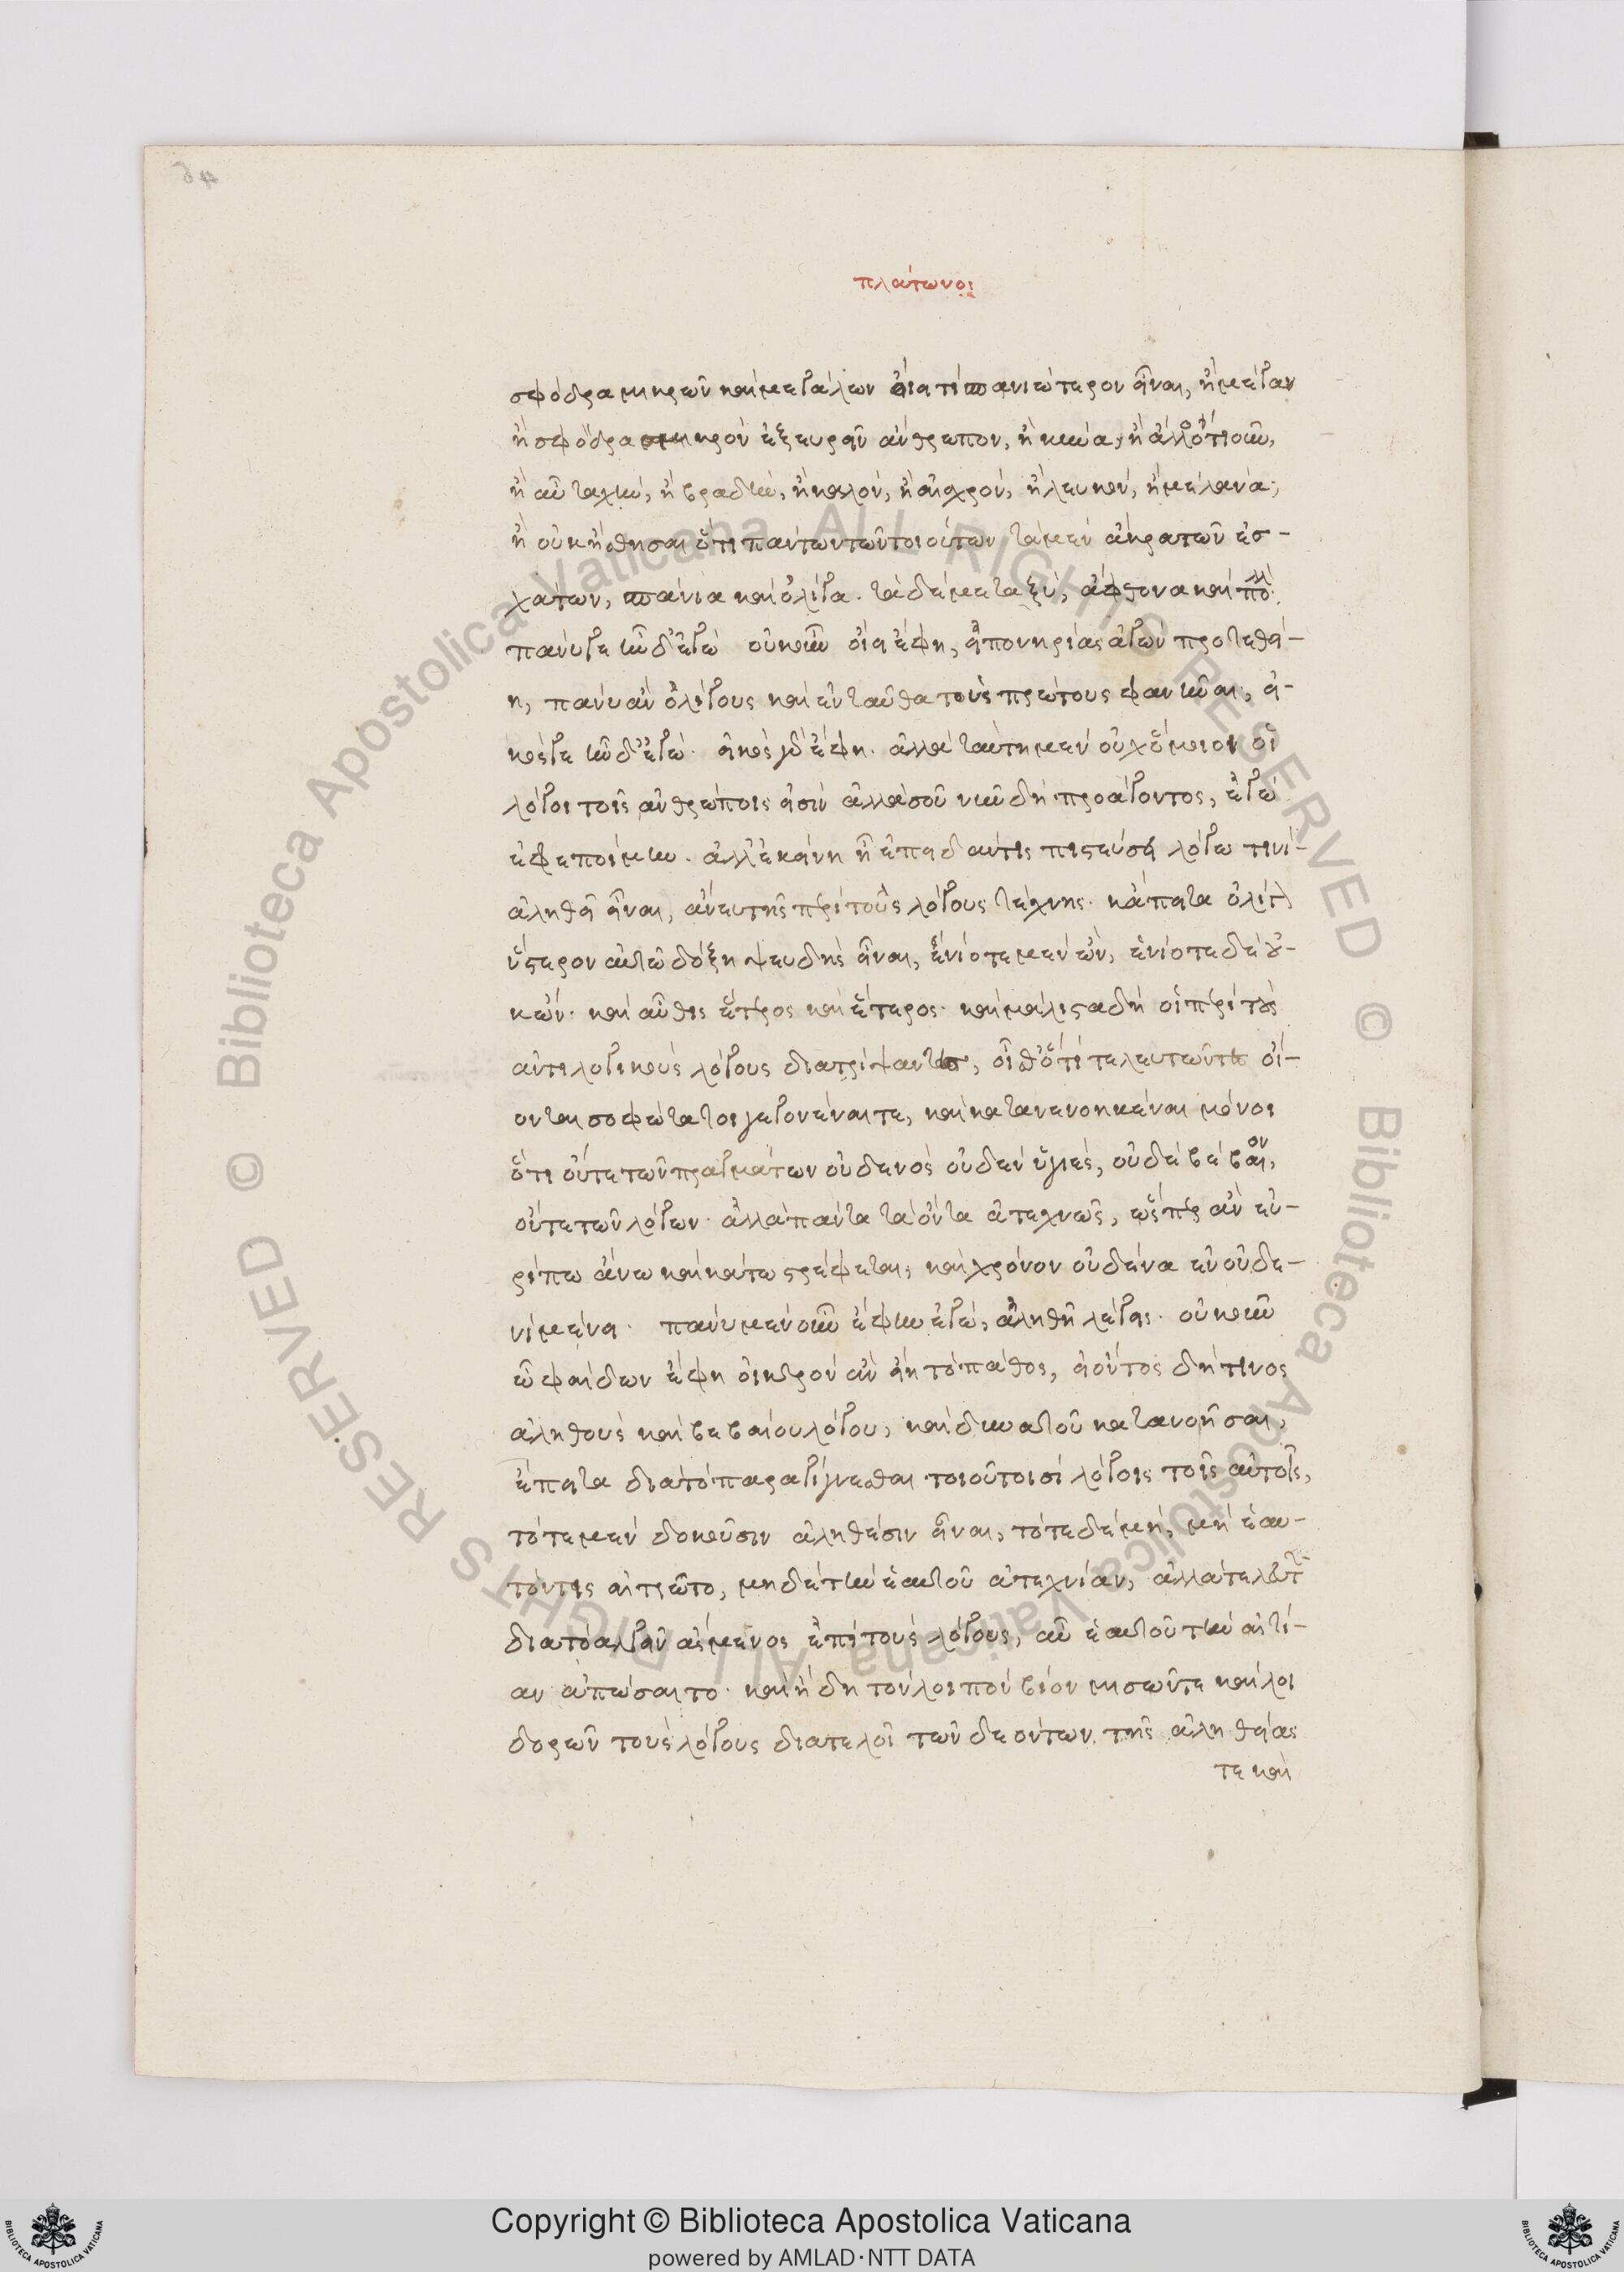 πλάτωνος
σφόδρα μικρῶν καὶ μεγάλων οἴει τὶ σπανιώτερον εἶναι, ἢ μέγαν
ἢ σφόδρα μικρὸν ἐξευρεῖν ἄνθρωπον, ἢ κύνα, ἢ ἄλλο ὁτιοῦν,
ἢ αὖ ταχὺν, ἢ βραδὺν, ἢ καλὸν, ἢ αἰσχρὸν, ἢ λευκὸν, ἢ μέλανα;
ἢ οὐκ ᾔσθησαι ὅτι πάντων τῶν τοιούτων τὰ μὲν ἄκρα τῶν ἐσ-
χάτων, σπάνια καὶ ὀλίγα. τὰ δὲ μεταξὺ, ἄφθονα καὶ πολλὰ.
πάνυ γε ἦν δ' ἐγὼ οὐκοῦν οἴει ἔφη, εἰ πονηρίας ἀγὼν προτεθεί-
η, πάνυ ἂν ὀλίγους καὶ ἐνταῦθα τοὺς πρώτους φανῆναι, εἰ-
κός γε ἦν δ' ἐγὼ. εἰκὸς γὰρ ἔφη. ἀλλὰ ταύτη μὲν οὐχ ὅμοιοι οἱ
λόγοι τοῖς ἀνθρώποις εἰσὶν ἀλλὰ σοῦ νῦν δὴ προάγοντος, ἐγὼ
ἐφεπόμην. ἀλλ' ἐκείνη ᾗ ἐπειδάν τις πιστεύση λόγω τινὶ
ἀληθεῖ εἶναι, ἄνευ τῆς περὶ τοὺς λόγους τέχνης. κἄπειτα ὀλίγον
ὕστερον αὐτῶ δόξη ψευδὴς εἶναι, ἐνίοτε μὲν ὢν, ἐνίοτε δὲ οὐ-
κ ὢν. καὶ αὖθις ἕτερος καὶ ἕτερος. καὶ μάλιστα δὴ οἱ περὶ τοὺς
ἀντιλογικοὺς λόγους διατρίψαντες, οἶσθ' ὅτι τελευτῶντες οἴ-
ονται σοφώτατοι γεγονέναι τε, καὶ κατανενοηκέναι μόνοι
ὅτι οὔτε τῶν πραγμάτων οὐδενὸς οὐδὲν ὑγιὲς, οὐδὲ βέβαιον,
οὔτε τῶν λόγων. ἀλλὰ πάντα τὰ ὄντα ἀτεχνῶς, ὥσπερ ἂν εὐ-
ρίπω ἄνω καὶ κάτω στρέφεται, καὶ χρόνον οὐδένα ἐν οὐδε-
νὶ μένει. πάνυ μὲν οὖν ἔφην ἐγὼ, ἀληθῆ λέγεις. οὐκοῦν
ὦ φαίδων ἔφη οἰκτρὸν ἂν εἴη τὸ πάθος, εἰ ὄντος δή τινος
ἀληθοῦς καὶ βεβαίου λόγου, καὶ δυνατοῦ κατανοῆσαι,
ἔπειτα διὰ τὸ παραγίγνεσθαι τοιούτοισὶ λόγοις τοῖς αὐτοῖς,
τότε μὲν δοκοῦσιν ἀληθέσιν εἶναι, τότε δὲ μὴ, μὴ ἑαυ-
τόν τις αἰτιῶτο, μηδὲ τὴν ἑαυτοῦ ἀτεχνίαν, ἀλλὰ τελευτῶν
διὰ τὸ ἀλγεῖν ἄσμενος ἐπὶ τοὺς λόγους, ἀφ' ἑαυτοῦ τὴν αἰτί-
αν ἀπώσαιτο. καὶ ἤδη τὸν λοιπὸν βίον μισῶν τε καὶ λοι
δορῶν τοὺς λόγους διατελοῖ τῶν δὲ ὄντων τῆς ἀληθείας
τε καὶ